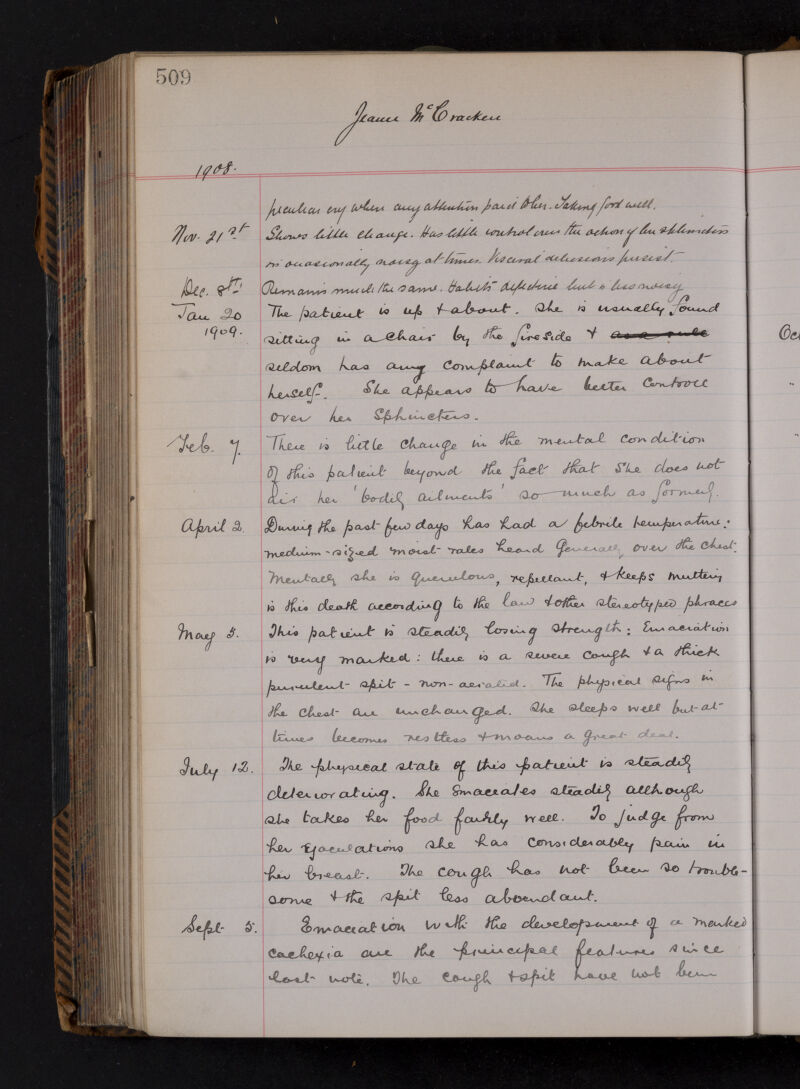 509
Jeanie McCracken
1908.
peculiar cry when any attention paid to her. Taking food well.
Nov. 21st Shows little change. Has little control over the action of her sphincters
on occasionally noisy at times. Visceral delusions persist
Dec. 8th Remains much the same. Habits defective but is less noisy
Jan 20 The patient is up & about. She is usually found
1909. sitting in a chair by the fireside & as a rule
seldom has any complaint to make about
herself. She appears to have better controll
over her Sphincters.
Feb. 7. There is little change in the mental condition
of this patient beyond the fact that she does not
air her 'bodily ailments' so much as formerly.
April 2. During the past few days has had a febrile temperature:
medium-sized moist rales heard generally over the chest.
Mentally she is querulous, repellant, & keeps muttering
is this death according to the law & other stereotyped phrases
May 5. This patient is steadily losing strength: Emaciation
is very marked: there is a severe cough & a thick
purulent spit - non-aerated. The physical signs in
the chest are unchanged. She sleeps well but at
times becomes restless & moans a great deal.
July 12. The physical state of this patient is steadily
deteriorating. She Emaciates steadily although
she takes her food fairly well. To judge from
her Ejaculations she has considerably pain in
her breast. The cough has not been so trouble-
some & the spit less abundant.
Sept 5. Emaciation with the development of a marked
cachexia are the principal features since
last note. The cough & spit have not been
Oc